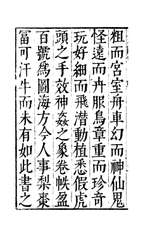 粗而宮室舟車幻而神仙鬼
怪遠而卉服鳥章重而珍奇
玩好細而飛潛動植悉假虎
頭之手效神姦之象卷帙盈
百號爲圖海方今人事梨棗
冨可汗牛而未有如此書之